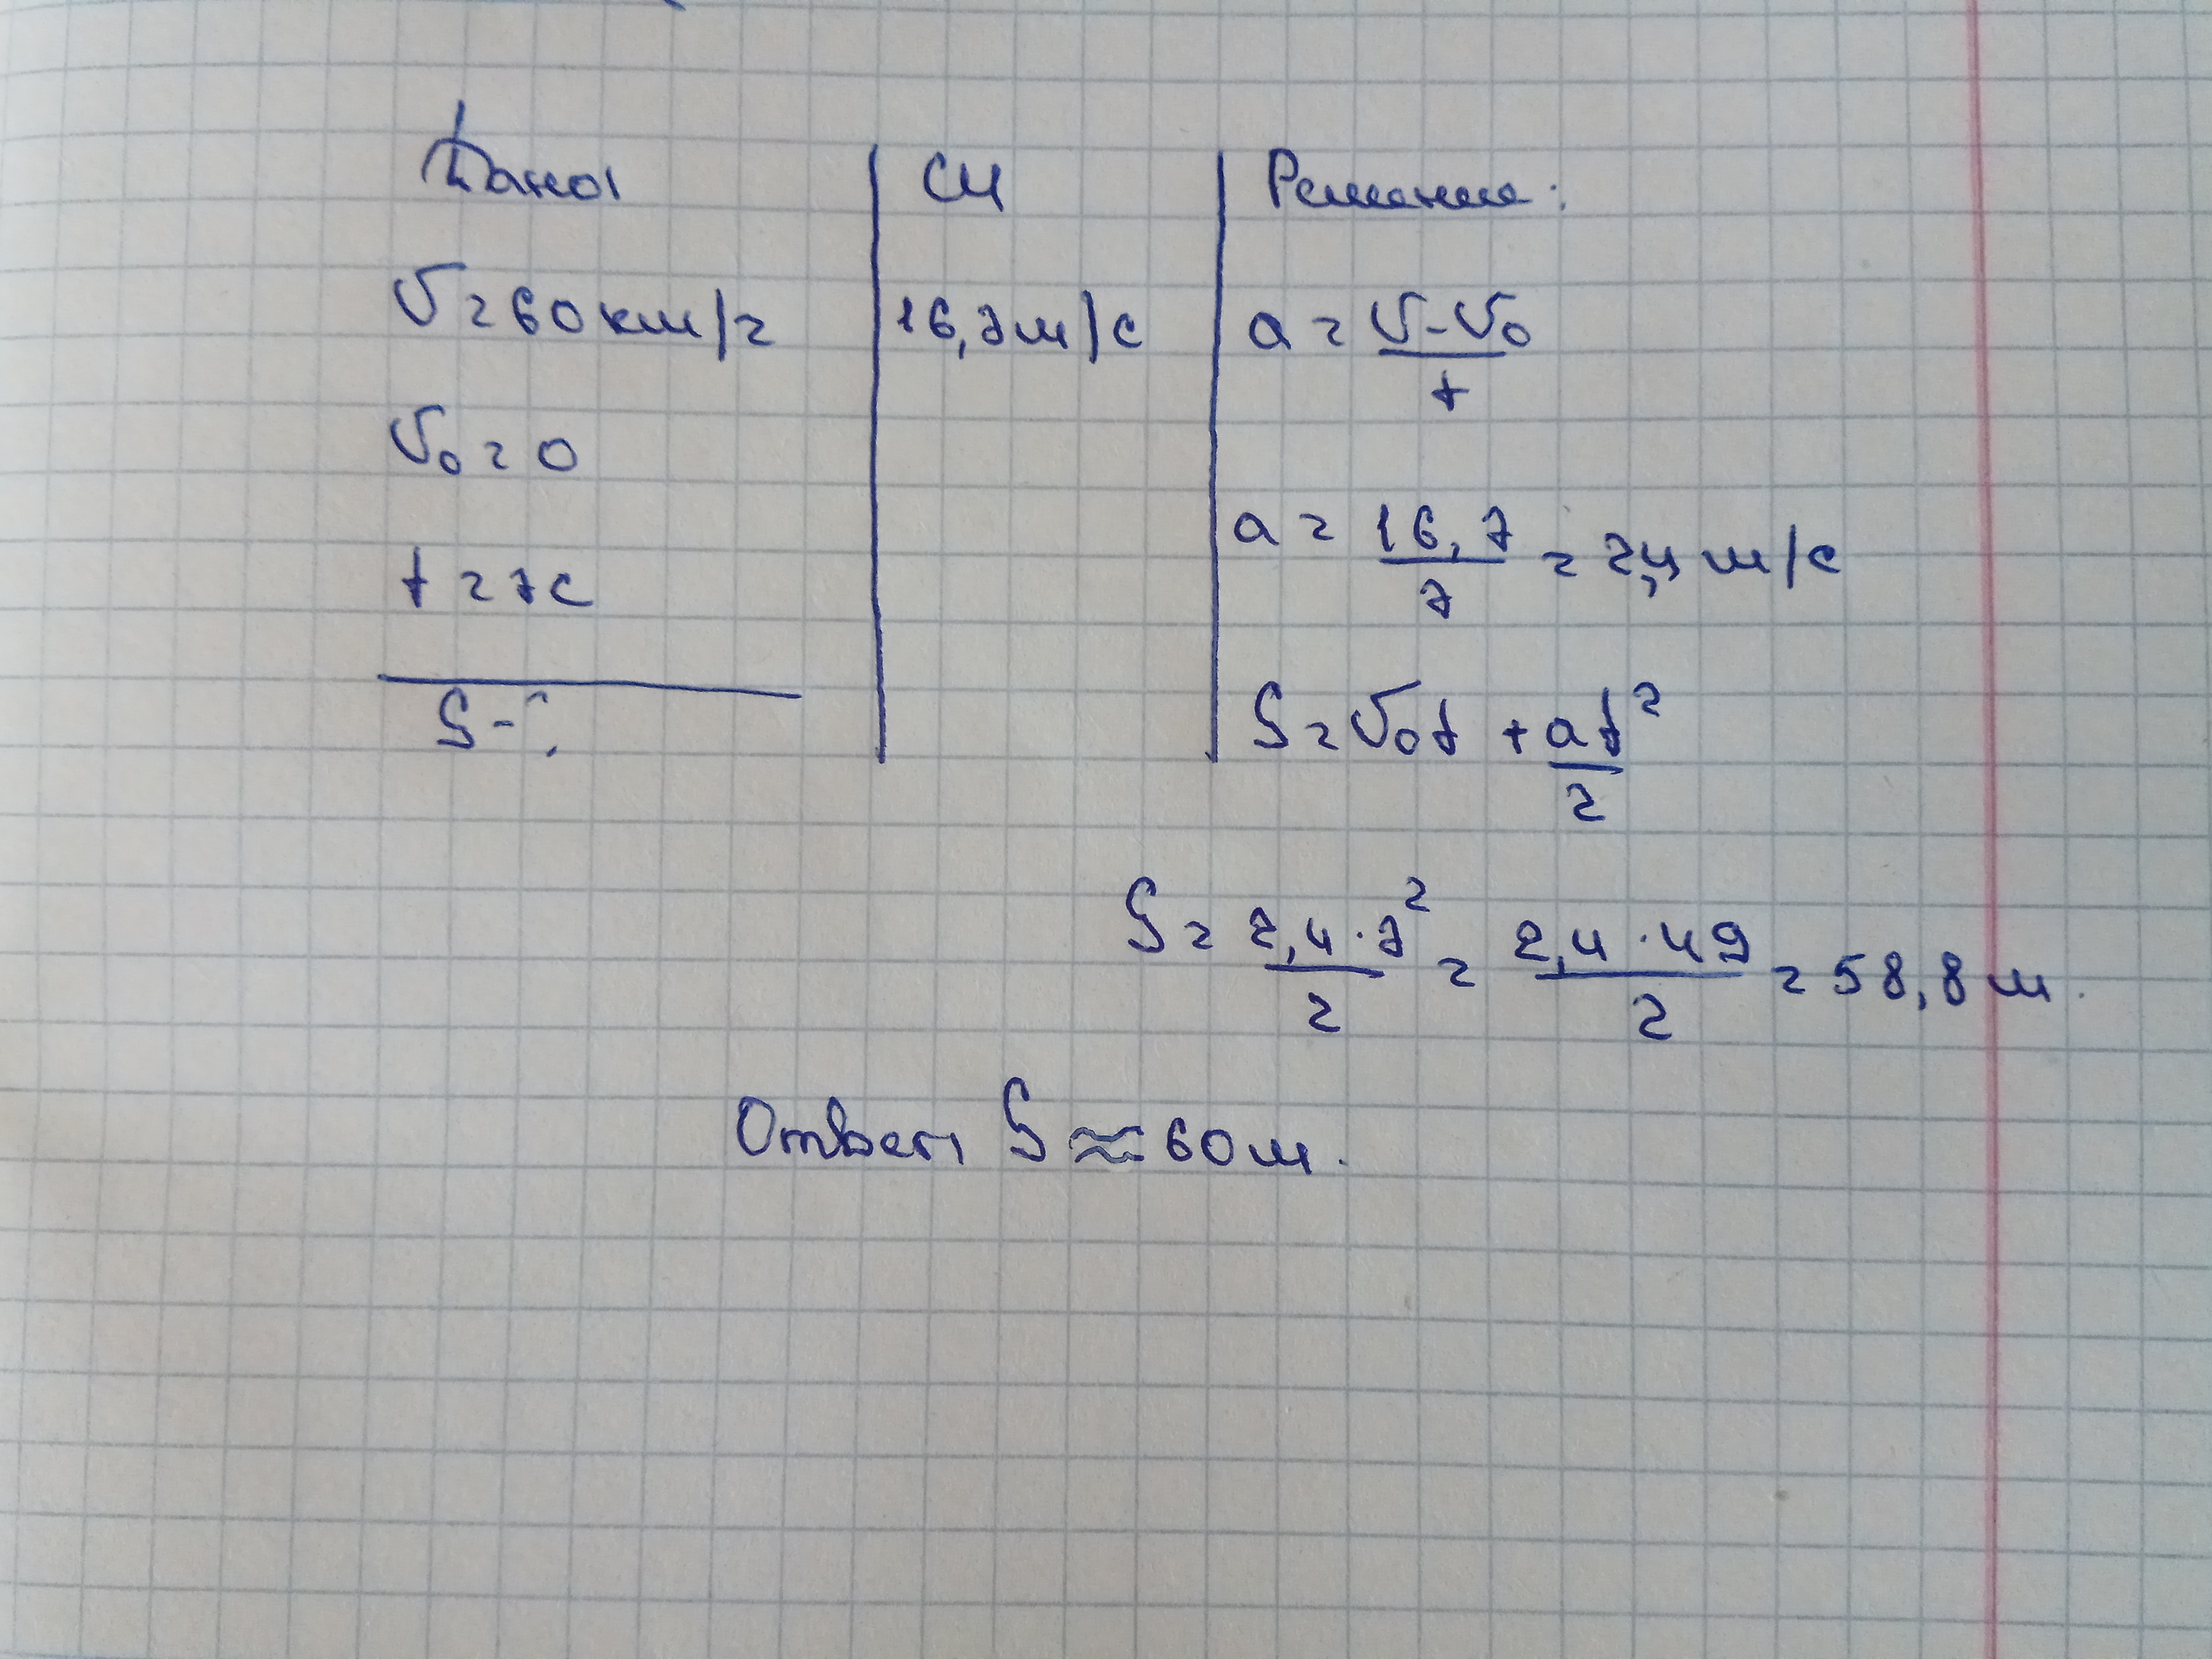 Дано:
СИ
Решение:
υ = 60 км/ч
16,7 м/с
a = υ - υ₀ / t
υ₀ = 0
a = 16,7 / 7 = 2,4 м/с
t = 7 с
S - ?
S = υ₀t + at² / 2
S = 2,4 · 7² / 2 = 2,4 · 49 / 2 = 58,8 м.
Ответ: S ≈ 60 м.